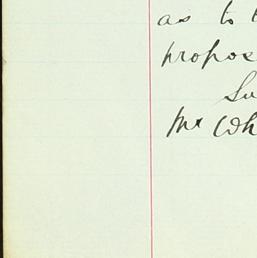 as to t
propos
Su
Mr Wh